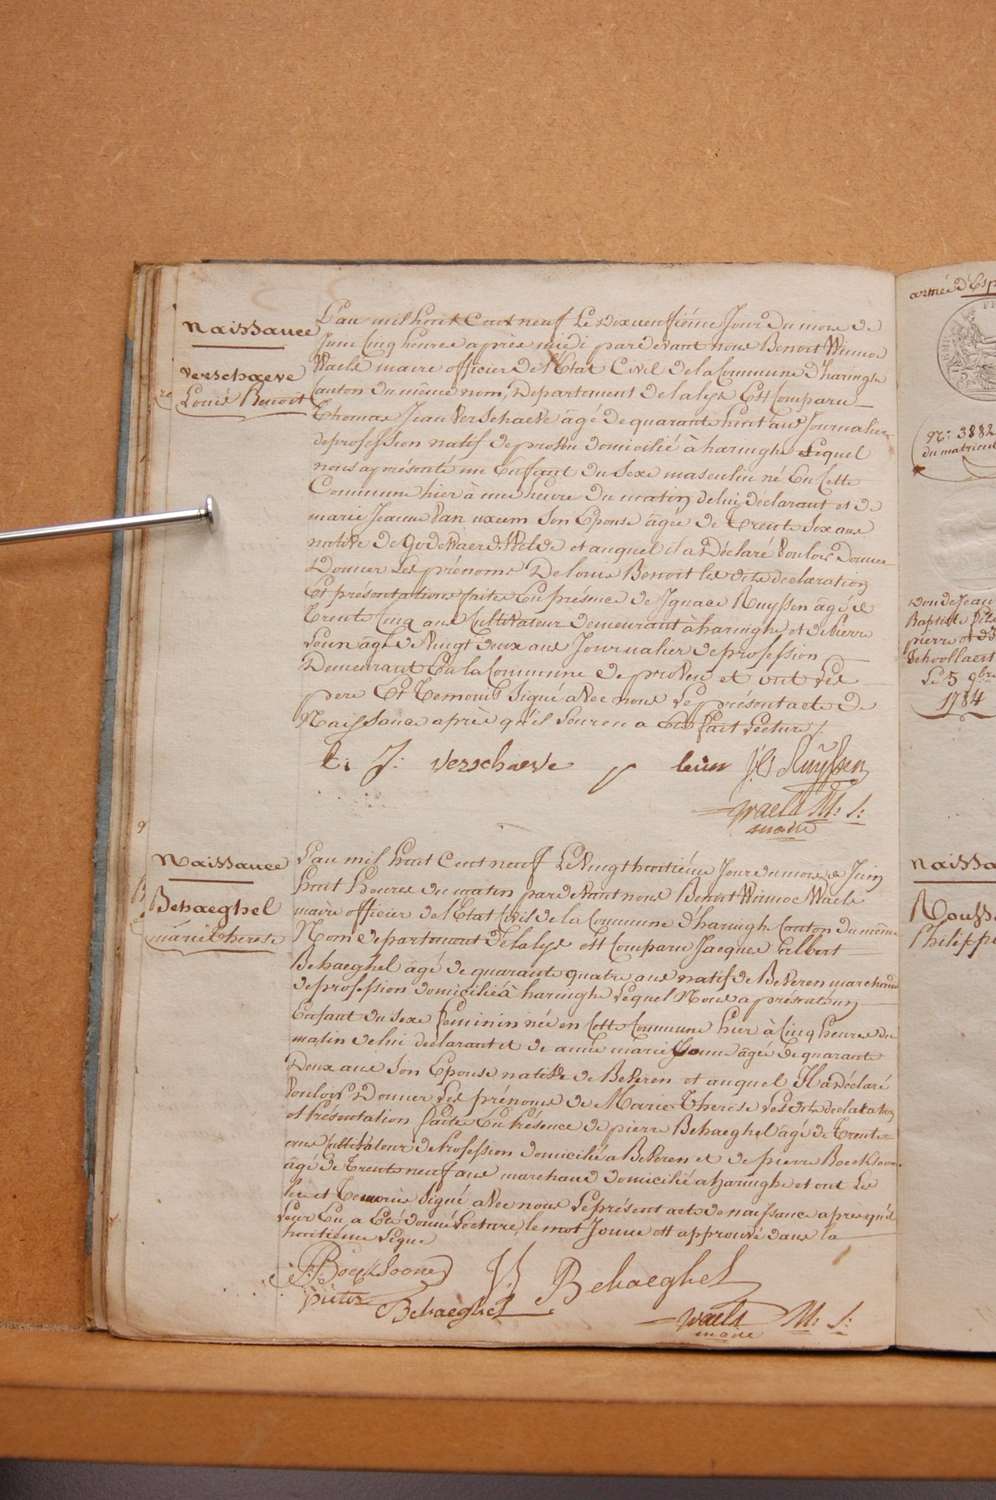 Naissance
verschaeve
Louis Benoit
L'an mil huit Cent neuf Le dixneuffiéme Jour du mois de
Juin Cinq heures aprés midi pardevant nous Benoit Winnoc
Waels maire officier de l'Etat Civil de la Commune d'haringhe
Canton du même nom, Département de la lys Est Comparu
Thomas Jean Verschaeve âgé de quarante huit ans Journalier
de profession natif de proven domicilié à haringhe Lequel
nous a présenté un Enfant du Sexe masculin né En Cette
Commune hier à une heure du matin de lui déclarant et de
marie Jeanne Van uxem Son Epouse âgée de Trente Six ans
native de Godewaersvelde et auquel il a Déclaré Vouloir Donner
Donner Les prénoms De louis Benoit les dites déclaration
Et présentation faites En présence de Ignace Ruyssen âgé de
Trente Cinq ans Cultivateur demeurant à haringhe et de Pierre
Leun âgé de Vingt deux ans Journalier de profession
Demeurant En la Commune de proven et ont Les
pere Et Temoins Signé avec nous Le présent acte de
Naissance après qu'il Leur en a Eté fait Lecture /
t: J: verschaeve p leun J:G Ruyssen
Waels M: S:
maire
9
Naissance
Behaeghel
marie therese
L'an mil huit Cent neuf Le Vingt huitiéme Jour du mois de Juin
huit heures du matin pardevant nous Benoit Winnoc Waels
maire officier de l'Etat Civil de la Commune d'haringhe Canton du même
Nom département de la lys est Comparu Jacques Gilbert
Behaeghel âgé de quarante quatre ans natif de Beveren marchand
de profession domicilié à haringhe Lequel Nous a présenté un
Enfant du Sexe Feminin née en Cette Commune hier à Cinq heures du
matin de lui déclarant et de anne marie Jonne âgée de quarante
Deux ans Son Epouse native de Beveren et auquel Il a Déclaré
Vouloir Donner Les prénoms de Marie Therese Les dites déclaration
et Présentation faites En Présence de pierre Behaeghel âgé de Trente
ans Cultivateur de Profession domicilié à Beveren et de pierre Boecksoone
âgé de Trente neuf ans marchand domicilié à haringhe et ont Les
Pere et Temoins Signé avec nous Le présent acte de naissance apres qu'il
Leur En a Eté donné Lecture, le mot Jonne est approuvé dans la
huitiéme Ligne
P: Boecksoone J: G Behaeghel
pieter Behaeghel
Waels M: S:
maire
armée d'Esp
N: 3882
du matricul
don de Jean
Baptiste
pierre et d
Schoollaert
Le 5 9bre
1784
naissa
Rouss
Philippe